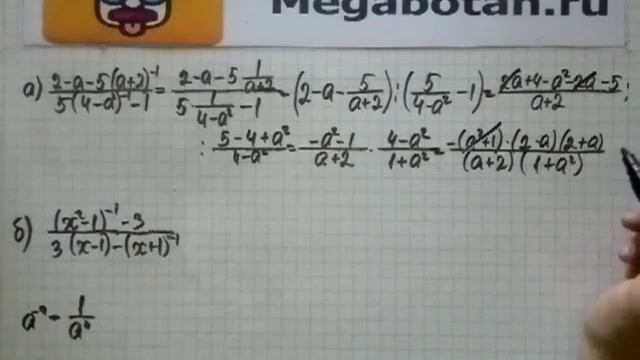 Megabotan.ru
а) (2-a-5(a+2)^-1)/(5(4-a²)^-1-1) = (2-a-5 1/(a+2))/(5 1/(4-a²) -1) = (2-a-5/(a+2)) : (5/(4-a²) -1) = (2a+4-a²-2a-5)/(a+2) :
: (5-4+a²)/(4-a²) = (-a²-1)/(a+2) · (4-a²)/(1+a²) = (-(a²+1)·(2-a)(2+a))/((a+2)(1+a²))
б) ((x²-1)^-1-3)/(3(x-1)-(x+1)^-1)